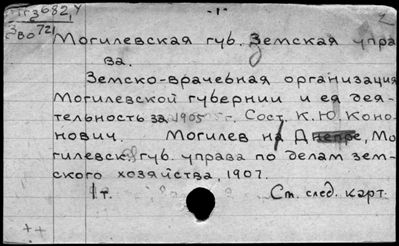 -1-
Могилевская губ. Земская упра
ва.
Земско-врачебная организация
Могилевской губернии и ея дея-
тельность за 1905 г. Сост. К.Ю. Коно-
нович. Могилев на Днепре, Мо
гилевск. губ. управа по делам зем-
ского хозяйства, 1907.
1т. См. след. карт.
++